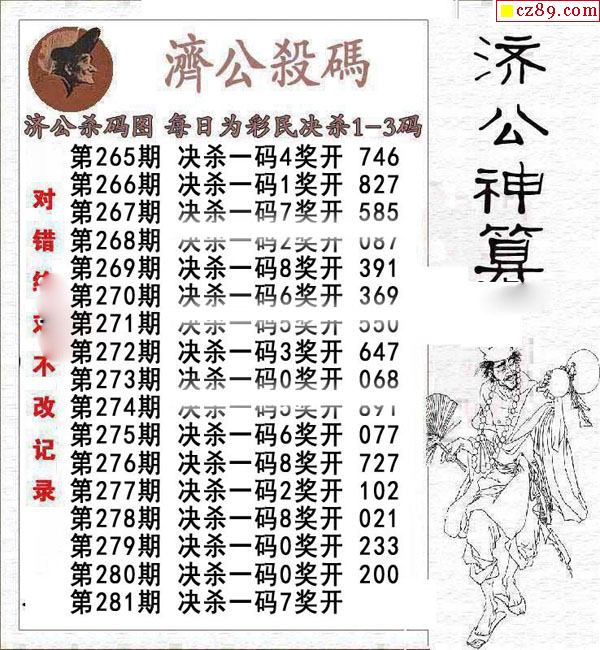 cz89.com
濟公殺碼
济公杀码图 每日为彩民决杀1-3码
第265期 决杀一码4奖开 746
第266期 决杀一码1奖开 827
第267期 决杀一码7奖开 585
第268期 决杀一码2奖开 087
第269期 决杀一码8奖开 391
第270期 决杀一码6奖开 369
第271期 决杀一码5奖开 550
第272期 决杀一码3奖开 647
第273期 决杀一码0奖开 068
第274期 决杀一码5奖开 891
第275期 决杀一码6奖开 077
第276期 决杀一码8奖开 727
第277期 决杀一码2奖开 102
第278期 决杀一码8奖开 021
第279期 决杀一码0奖开 233
第280期 决杀一码0奖开 200
第281期 决杀一码7奖开
对错 不改记录
济公神算